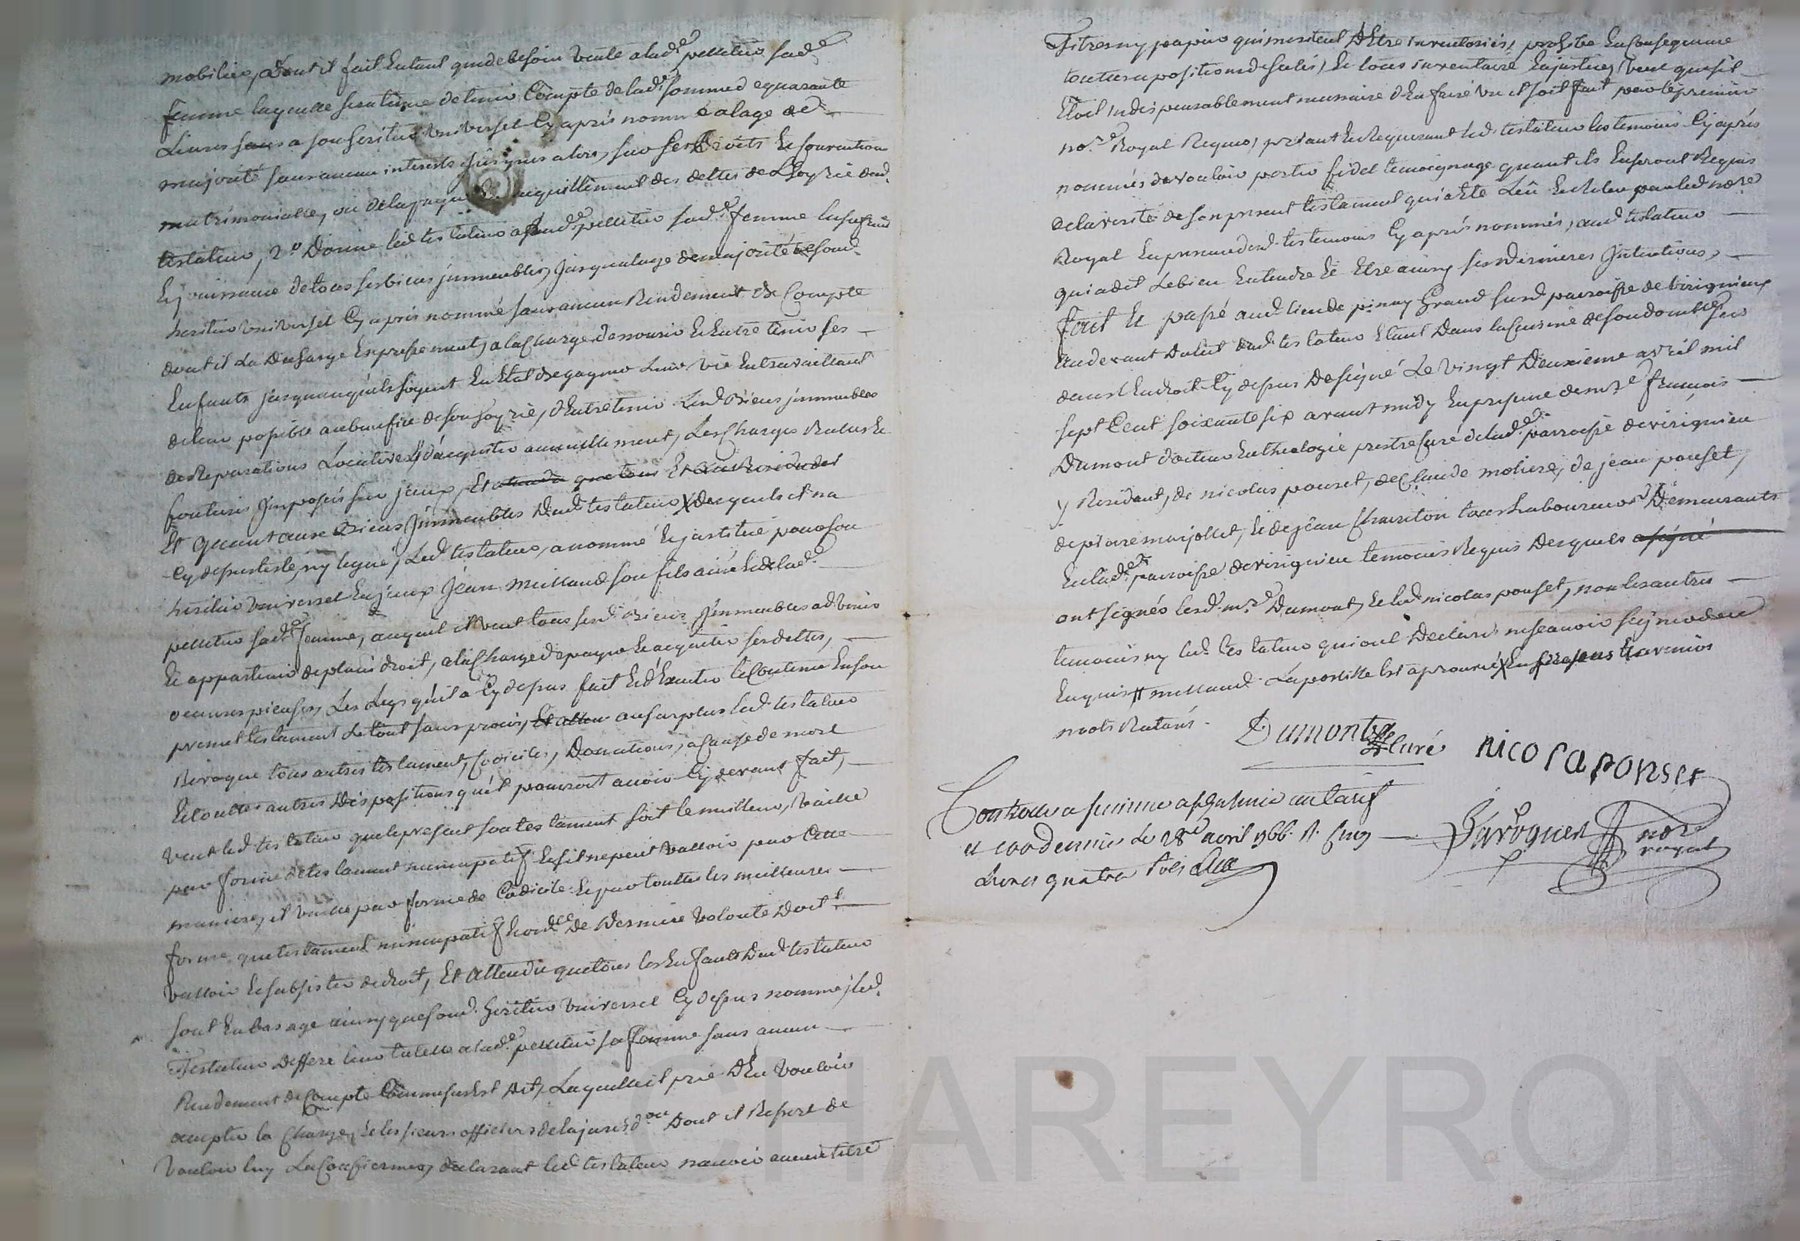 mobiliers, dont il fait Entant que de besoin vente a lad.e pelletier sad.e
femme laquelle sera tenue de tenir Compte de lad.e somme de quarante
Livres sans a son heritier universel Cy après nommé a lage de
majorité sans aucun interets jusques alors, sur ses droits Et
matrimoniaux, ou de la payer acquittement des dettes de L'hoyrie dud.
testateur, 2.o Donne led. testateur a lad.e pelletier sad.e femme
Et jouissance de tous ses biens immeubles, jusqua lage de majorité de sond.
heritier universel Cy après nommé sans aucun Rendement de Compte
dont il la Decharge Expressement, a la Charge de nourrir Et Entretenir ses
Enfants jusqua ce quils soyent En Etat de gagner Leur vie En travaillant
de leur possible au benefice de son hoyrie, d'Entretenir Lesd. Biens immeubles
de Reparations Locatives, d'acquitter annuellement, Les Charges Reelles Et
foncieres Imposés sur jceux, Et attendu que tous
Et quant aux Biens Immeubles Dud. testateur X Desquels il na
Cy dessus testé, ny legué, Led. testateur, a nommé Et institué pour son
heritier universel En jceux Jean Milland son fils ainé Et de lad.e
pelletier sad.e femme, auquel il veut tous sesd. Biens Immeubles advenir
Et appartenir de plain droit, a la Charge de payer Et acquitter ses dettes,
œuvres pieuses, Les Legs quil a Cy dessus fait Et d'Executer le Contenu En son
present testament Le tout sans procès, Et au surplus led. testateur
Revoque tous autres testament, Codicile, Donations, a Cause de mort
Et toutes autres Dispositions quil pourroit avoir Cy devant fait,
veut led. testateur que le present son testament soit le meilleur, vaille
par forme de testament nuncupatif Et sil ne peut valloir par Cette
maniere, il vaille par forme de Codicile Et par toutes les meilleures
formes, que testament nuncupatif Et de Derniere volonté Doit
valloir Et subsister de droit, Et Attendu que tous les Enfants Dud. testateur
sont En bas age ainsy que sond. heritier universel Cy dessus nommé, led.
Testateur Deffere leur tutelle a lad.e pelletier sa femme sans aucun
Rendement de Compte Comme sus Est Dit, Laquelle il prie d'En vouloir
accepter la Charge, Et les sieurs officiers de la jurisd.on Dont il Ressort de
vouloir luy La Confirmer, declarant led. testateur navoir aucun titre
Titres ny papiers qui meritent d'Etre inventoriés, prohibe En Consequence
toutte apposition de scelés, Et tous inventaire En justice, veut que sil
Etoit indispensablement necessaire d'En faire un il soit fait par le premier
no.re Royal Requis, priant Et Requerant led. testateur les temoins Cy après
nommés de vouloir porter fidel temoignage quant ils En seront Requis
de la verité de son present testament qui a Eté Leu Et Relu par led. no.re
Royal En presence desd. temoins Cy après nommés, aud. testateur
qui a dit Le bien Entendre Et Etre ainsy ses Dernieres Intentions,
fait Et passé aud. lieu de pinay Grand sur d. parroisse de virignieu
au devant du lit dud. testateur Etant Dans la Cuisine de son domicile
dans l'Endroit Cy dessus Designé Le vingt Deuxieme avril mil
sept Cent soixante six avant midy En presence de m.re françois
Dumont docteur En theologie prestre Curé de lad.e parroisse de virignieu
y Resident, de nicolas ponset, de Claude moliere, de jean ponset,
de pierre marjollet, Et de jean Chariton tous Laboureurs Demeurants
En lad.e parroisse de virignieu temoins Requis Desquels a signé
ont signés led. m.re Dumont, Et led. nicolas ponset, non les autres
temoins ny led. testateur qui ont Declaré ne scavoir signer de ce
Enquis # milland La postille Est aprouvé X
mots Raturés.
Dumont
Curé
nicola ponset
Controllé a
et le 28.e avril 1766. R. Cinq
Livres quatre sols
no.re
royal
CHAREYRON